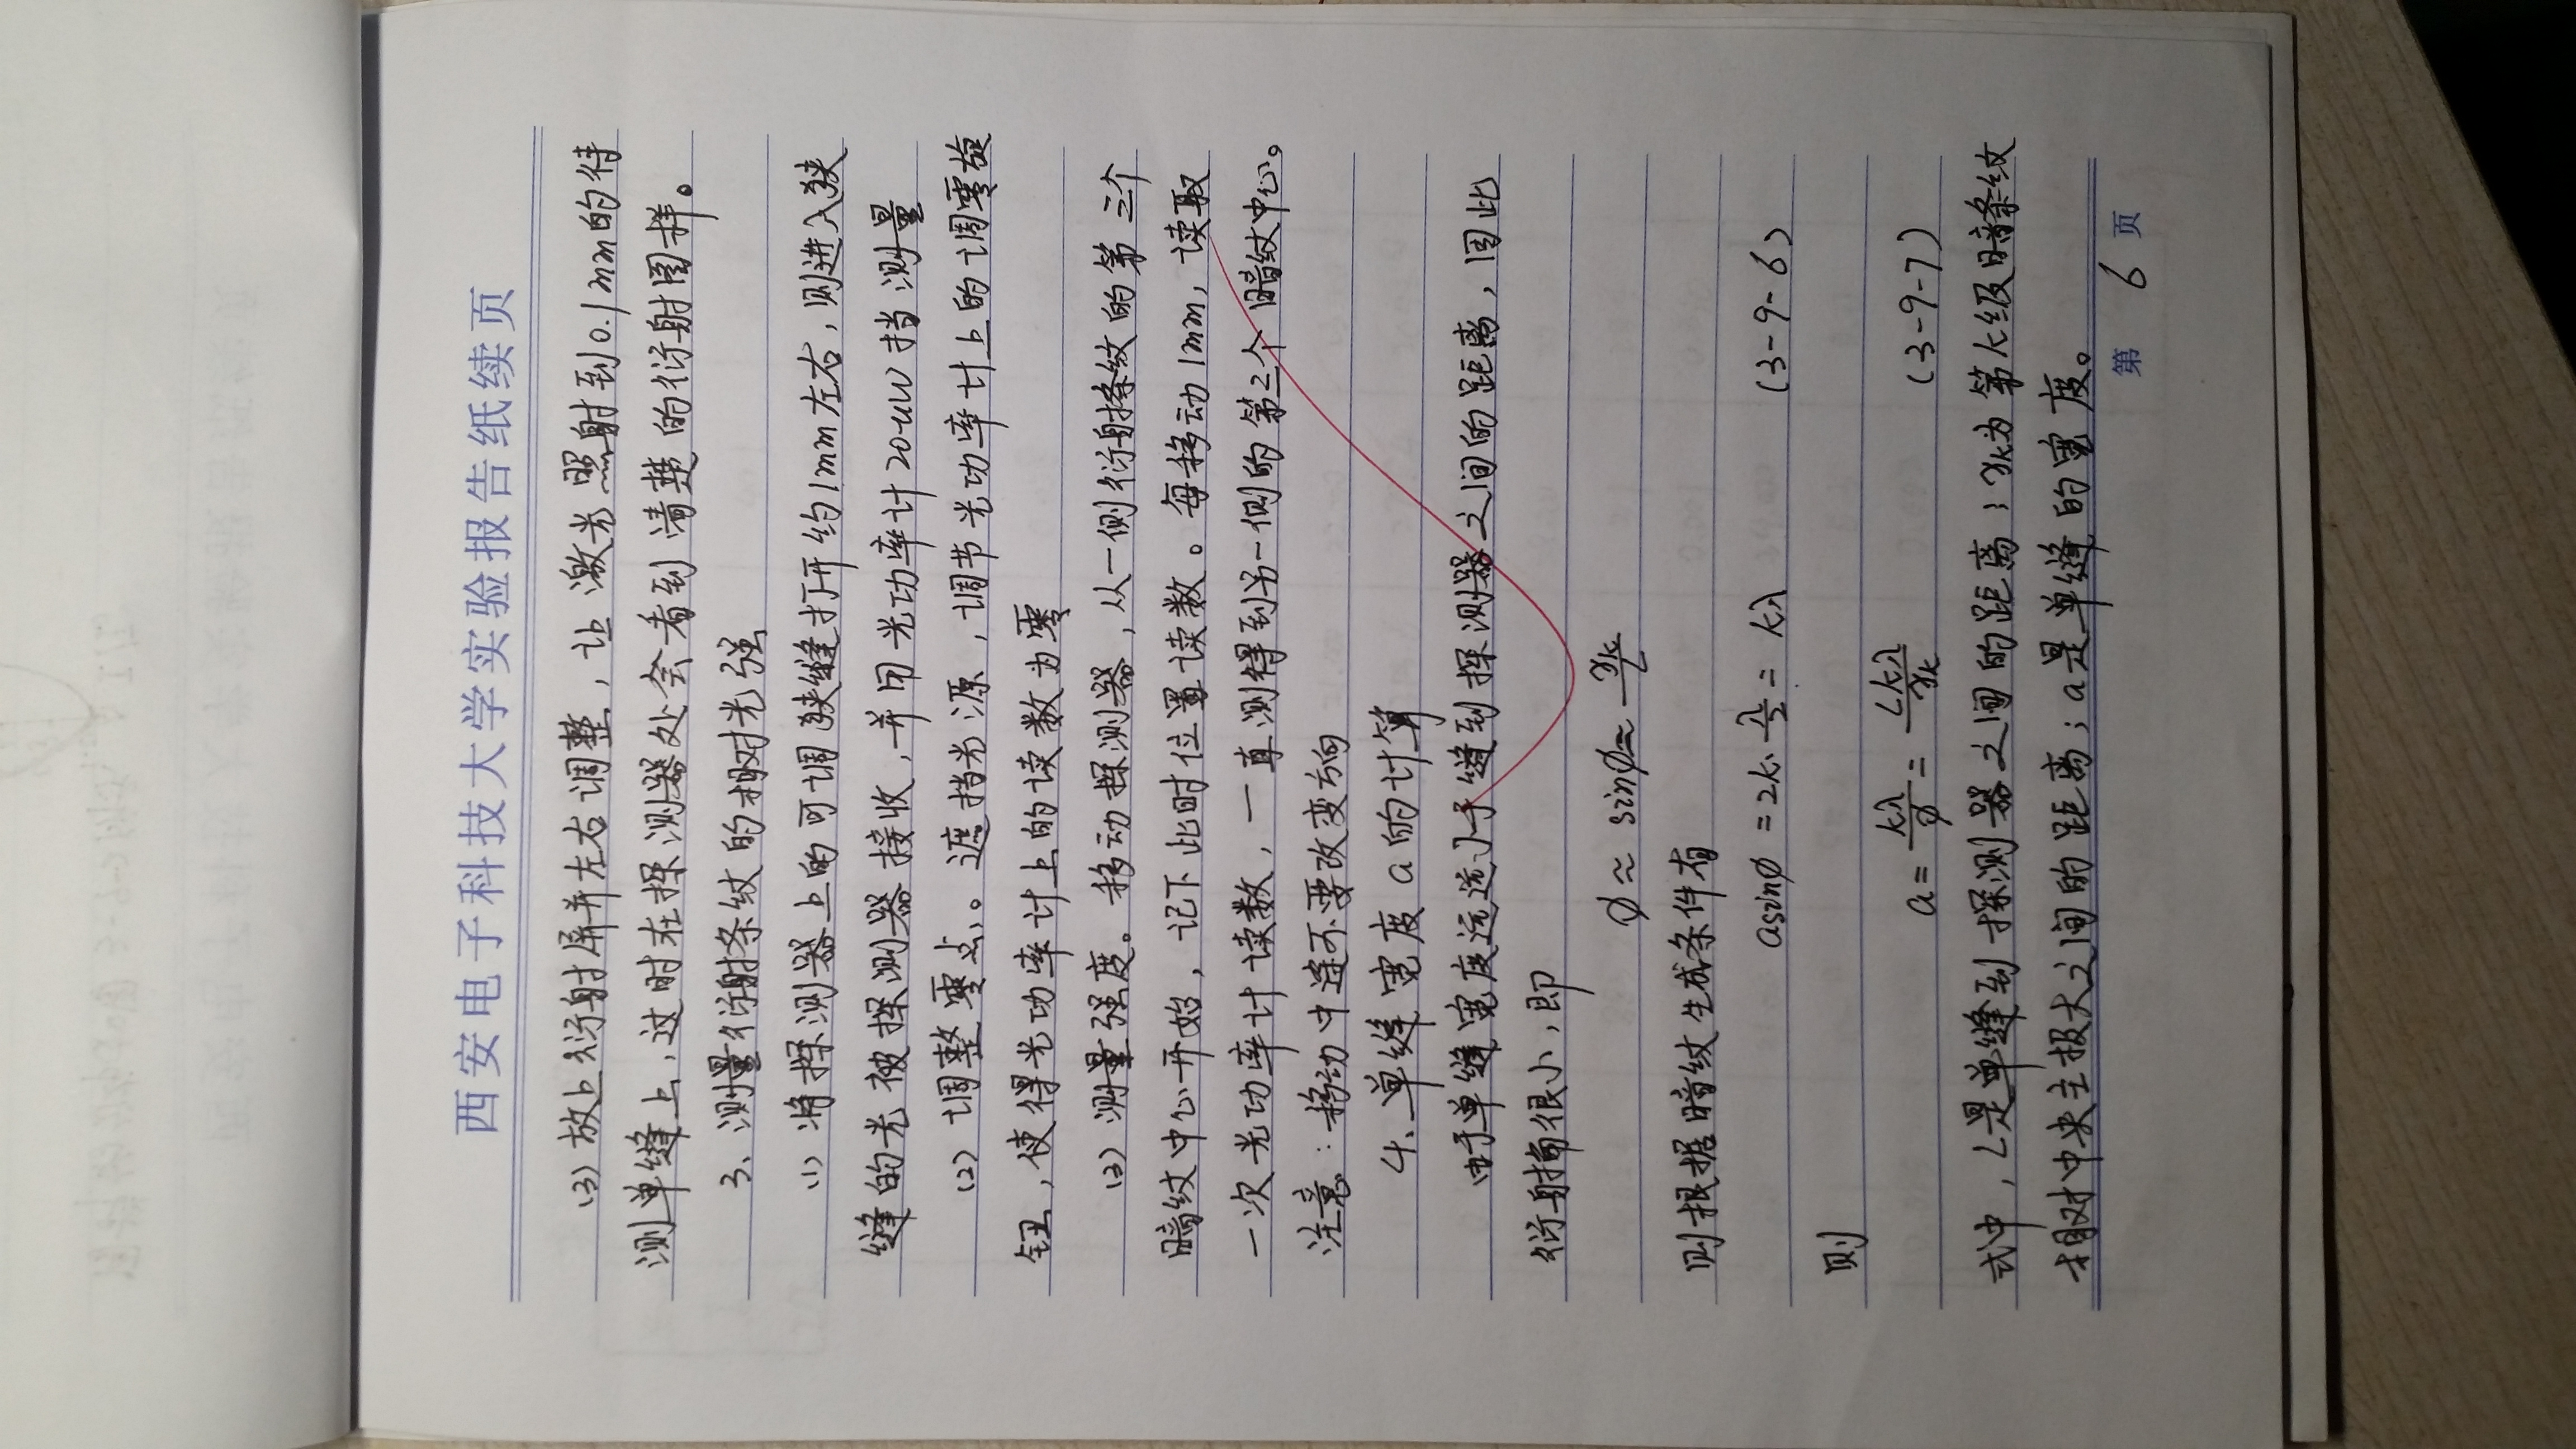 西安电子科技大学实验报告纸续页
(3) 放上衍射屏并左右调整，让激光照射到0.1mm的待
测单缝上，这时在探测器处会看到清楚的衍射图样。
3、测量衍射条纹的相对光强
(1) 将探测器上的可调狭缝打开约1mm左右，则进入狭
缝的光被探测器接收，并用光功率计20uW挡测量
(2) 调整零点。遮挡光源，调节光功率计上的调零旋
钮，使得光功率计上的读数为零
(3) 测量强度。移动探测器，从一侧衍射条纹的第三个
暗纹中心开始，记下此时位置读数。每移动1mm，读取
一次光功率计读数，一直测得到另一侧的第三个暗纹中心。
注意：移动中途不要改变方向
4、单缝宽度a的计算
由于单缝宽度远远小于缝到探测器之间的距离，因此
衍射角很小，即
ϕ ≈ sinϕ ≈ xk/L
则根据暗纹生成条件有
asinϕ = 2k·λ/2 = kλ (3-9-6)
则
a = kλ/ϕ = Lkλ/xk (3-9-7)
式中，L是单缝到探测器之间的距离；xk为第k级暗条纹
相对中央主极大之间的距离；a是单缝的宽度。
第 6 页